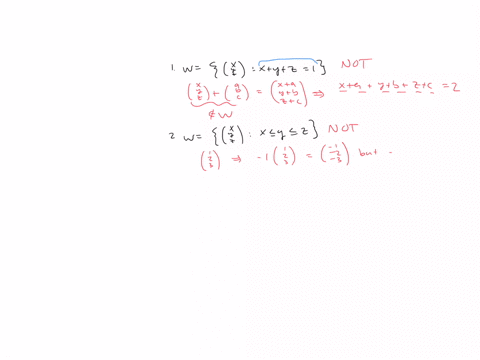 1. W = {(x y z) : x+y+z = 1} NOT
(x y z) + (a b c) = (x+a y+b z+c) ⇒ x+a + y+b + z+c = 2
∉ W
2. W = {(x y z) : x ≤ y ≤ z} NOT
(1 2 3) ⇒ -1 (1 2 3) = (-1 -2 -3) but -